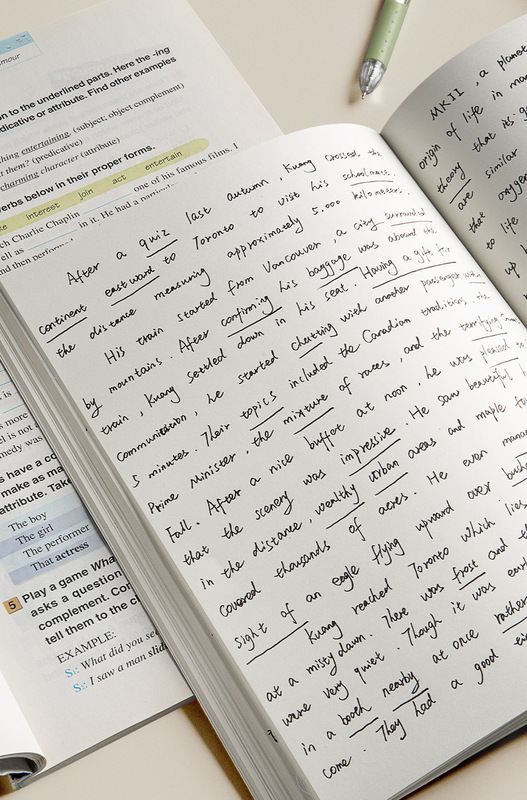 mour
n to the underlined parts. Here the -ing
dicative or attribute. Find other examples
hing entertaining. (subject; object complement)
t them? (predicative)
charming character (attribute)
erbs below in their proper forms.
interest join act entertain
ch Charlie Chaplin one of his famous films. I
ell as in it. He had a
nd then
is
el is not a
medy was
s have a co
make as ma
attribute. Take
The boy
The girl
The performer
That actress
5 Play a game Wha
asks a question
complement. Con
tell them to the c
EXAMPLE:
S1: What did you se
S2: I saw a man slid
After a quiz last autumn, Kuang crossed the
continent eastward to Toronto to visit his schoolmate.
the distance measuring approximately 5.000 kilometers
His train started from Vancouver, a city surrounded
by mountains. After confirming his baggage was aboard the
train, Kuang settled down in his seat. Having a gift for
communication, he started chatting with another passenger with
5 minutes. Their topics included the Canadian traditions, the
Prime minister, the mixture of races, and the terrifying
Fall. After a nice buffet at noon, he was pleased to
that the scenery was impressive. He saw beautiful
in the distance, wealthy urban areas and maple
covered thousands of acres. He even mana
sight of an eagle flying upward over bush
Kuang reached Toronto which lies
at a misty dawn. There was frost and th
were very quiet. Though it was earl
in a booth nearby at once rather
come. They had a good
MKII, a planet
origin of life in
theory that it's
are similar
that oxygen
to life
up